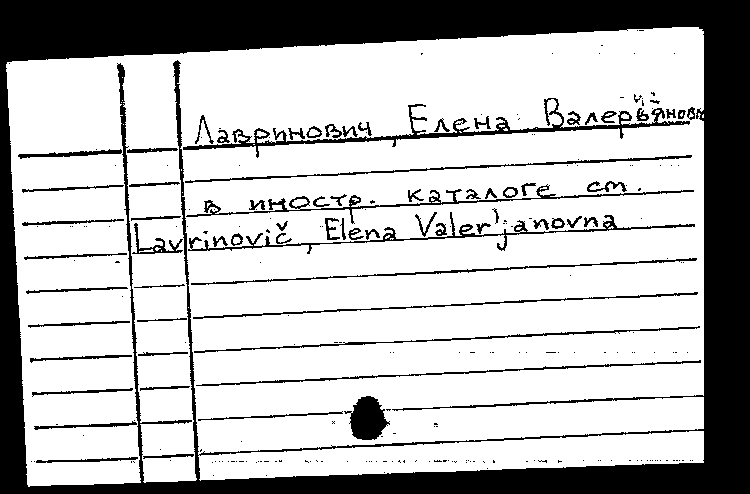 Лавринович, Елена Валерьяновн
в иностр. каталоге см.
Lavrinovič, Elena Valer'janovna